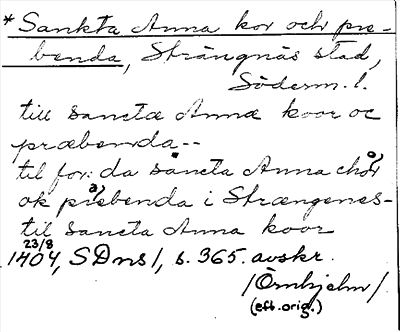 * Sankta Anna kor och pre-
benda, Strängnäs stad,
Söderm. l.
till sanctæ Annæ koor oc
præbenda --
til for: da sancta Anna chor
ok prebenda i Strængenes -
til sancta Anna koor
23/8
1404, SDns 1, s. 365. avskr.
/Örnhjelm/
(eft. orig.)